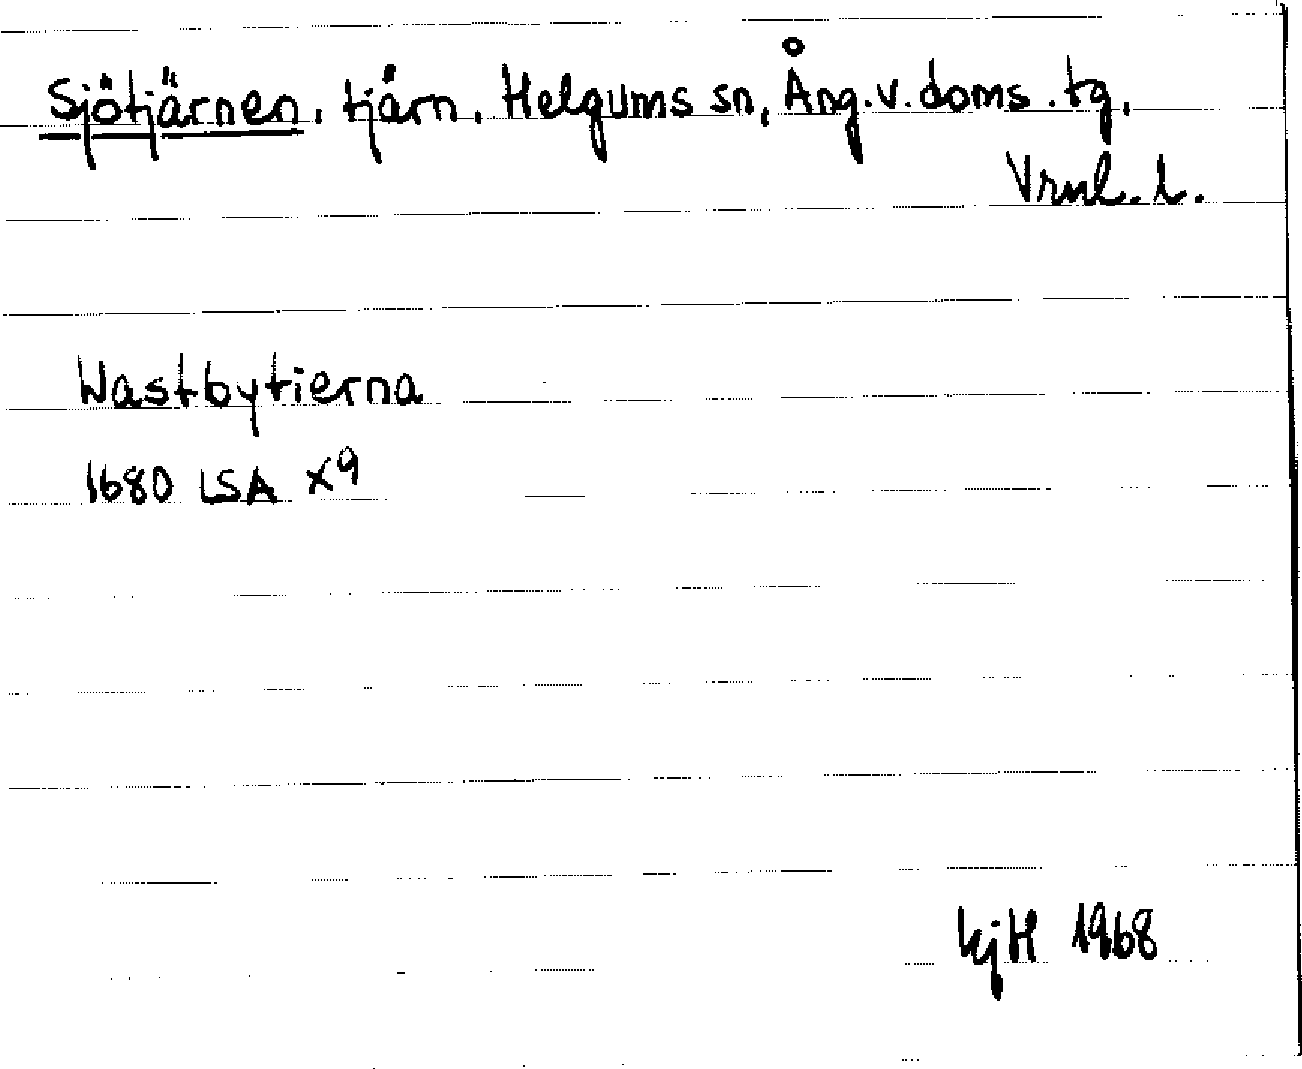 Sjötjärnen, tjärn, Helgums sn, Ång.v.doms.tg,
Vrnl. l.
Wastbytierna
1680 LSA X9
kjH 1968